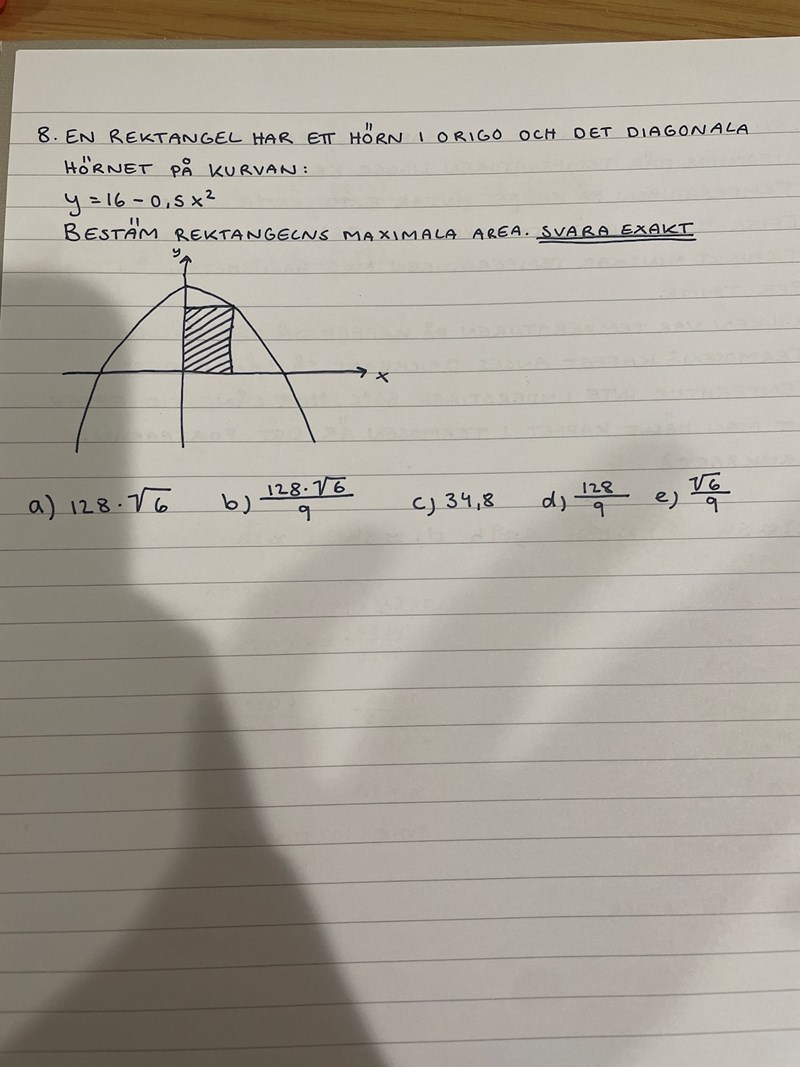 8. EN REKTANGEL HAR ETT HÖRN I ORIGO OCH DET DIAGONALA
HÖRNET PÅ KURVAN:
y = 16 - 0,5x²
BESTÄM REKTANGELNS MAXIMALA AREA. SVARA EXAKT
y
x
a) 128·√6 b) 128·√6/9 c) 34,8 d) 128/9 e) √6/9